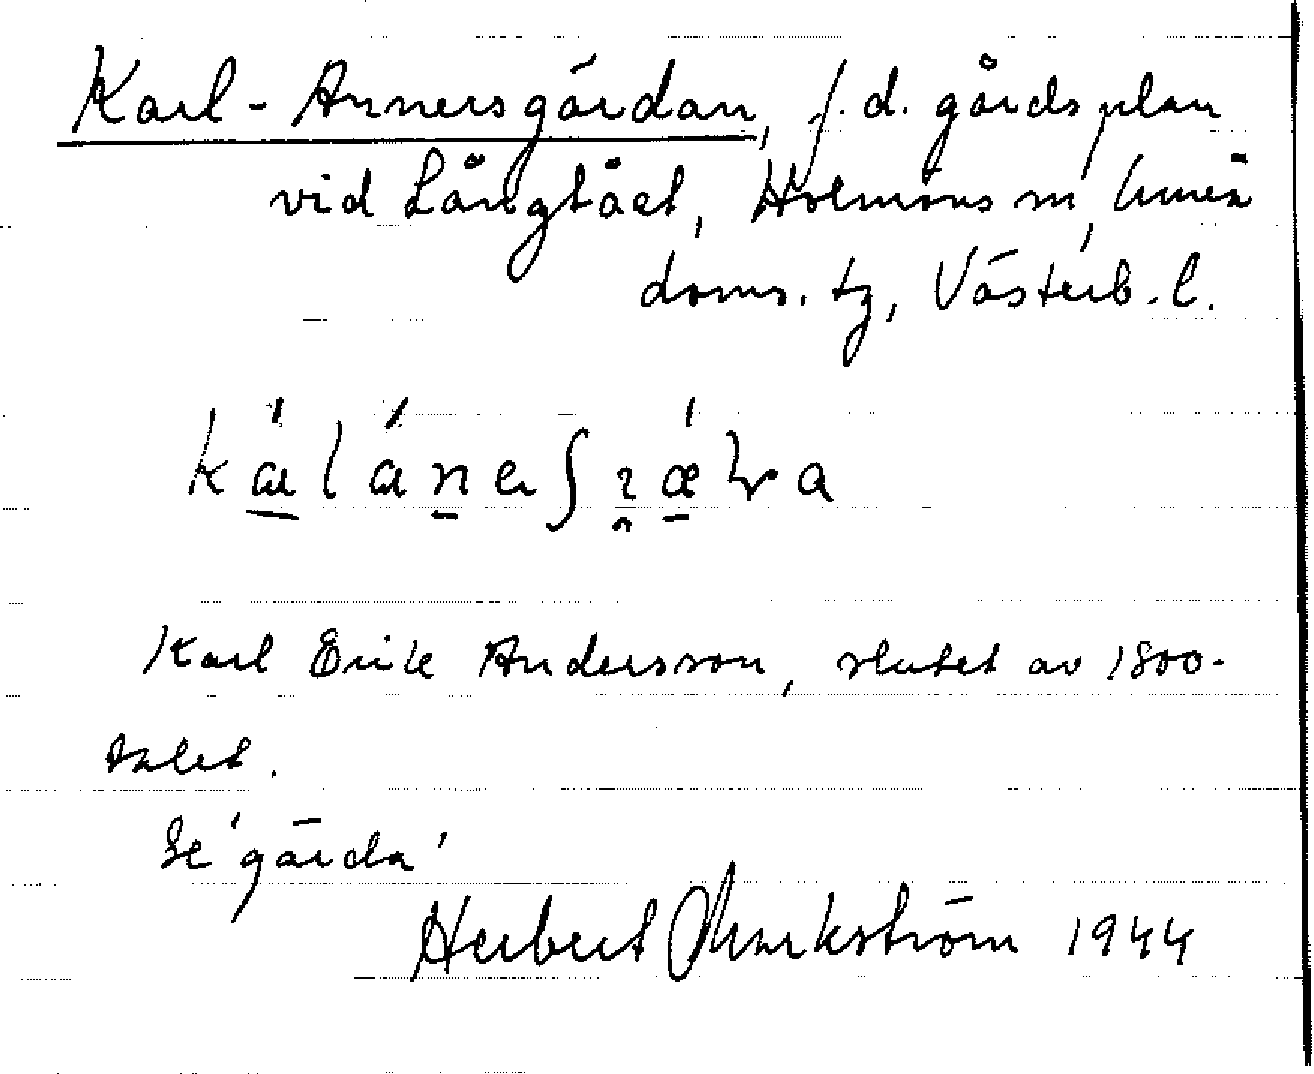 Karl-Annersgärdan, f.d. gårdsplan
vid Långtået, Holmöns sn, Umeå
doms. tg, Västerb. l.
Karl Erik Andersson, slutet av 1800-
talet.
Se 'gärda'
Herbert Markström 1944